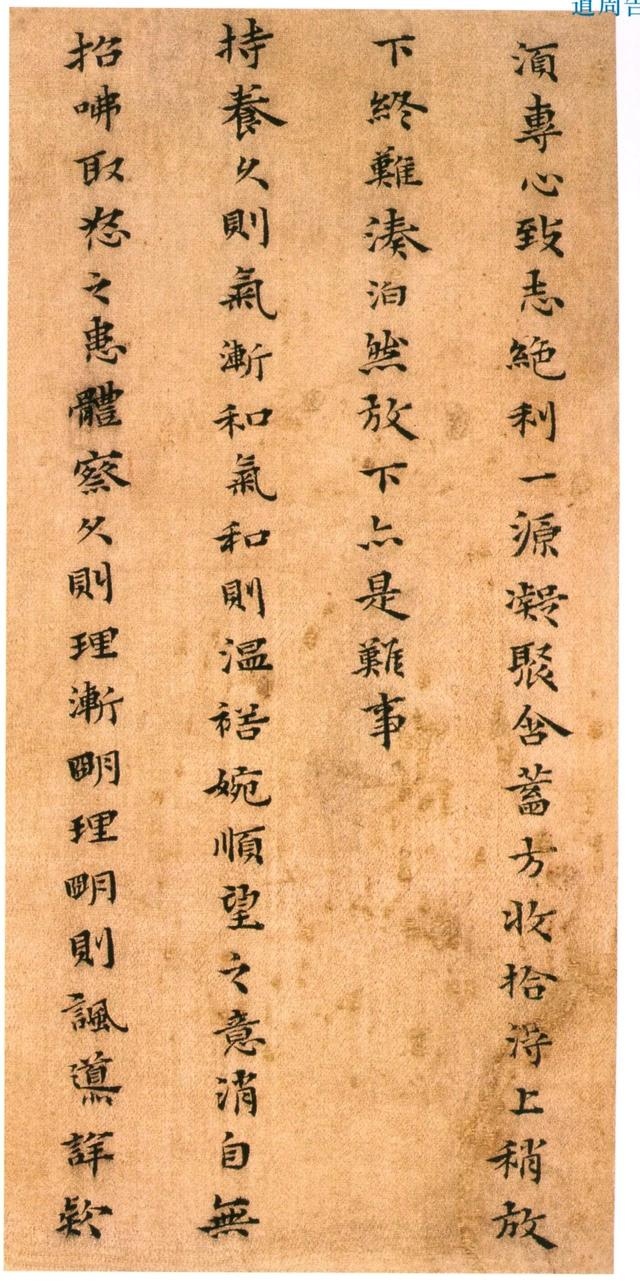 道周告
須專心致志絕利一源凝聚含蓄方收拾得上稍放
下終難湊泊然放下亦是難事
持養久則氣漸和氣和則溫裕婉順望之意消自無
招咈取怒之患體察久則理漸明理明則諷導詳款